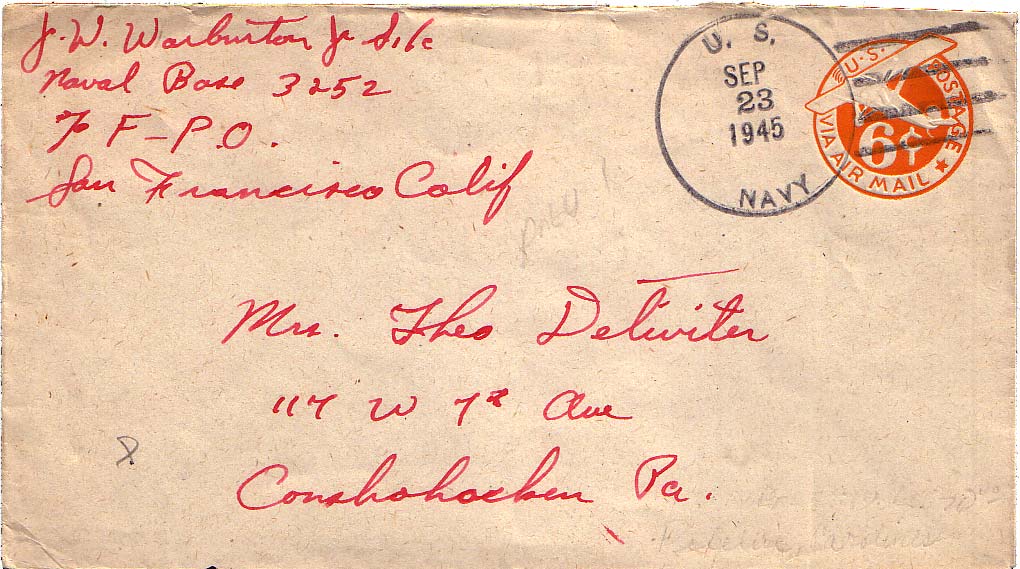 J. W. Warburton Jr S.1/c
Naval Base 3252
℅ F-P.O.
San Francisco Calif
U. S.
SEP
23
1945
NAVY
U.S. POSTAGE
6¢
VIA AIR MAIL
Mrs. Theo Detwiter
117 W 7th Ave
Conshohocken Pa.